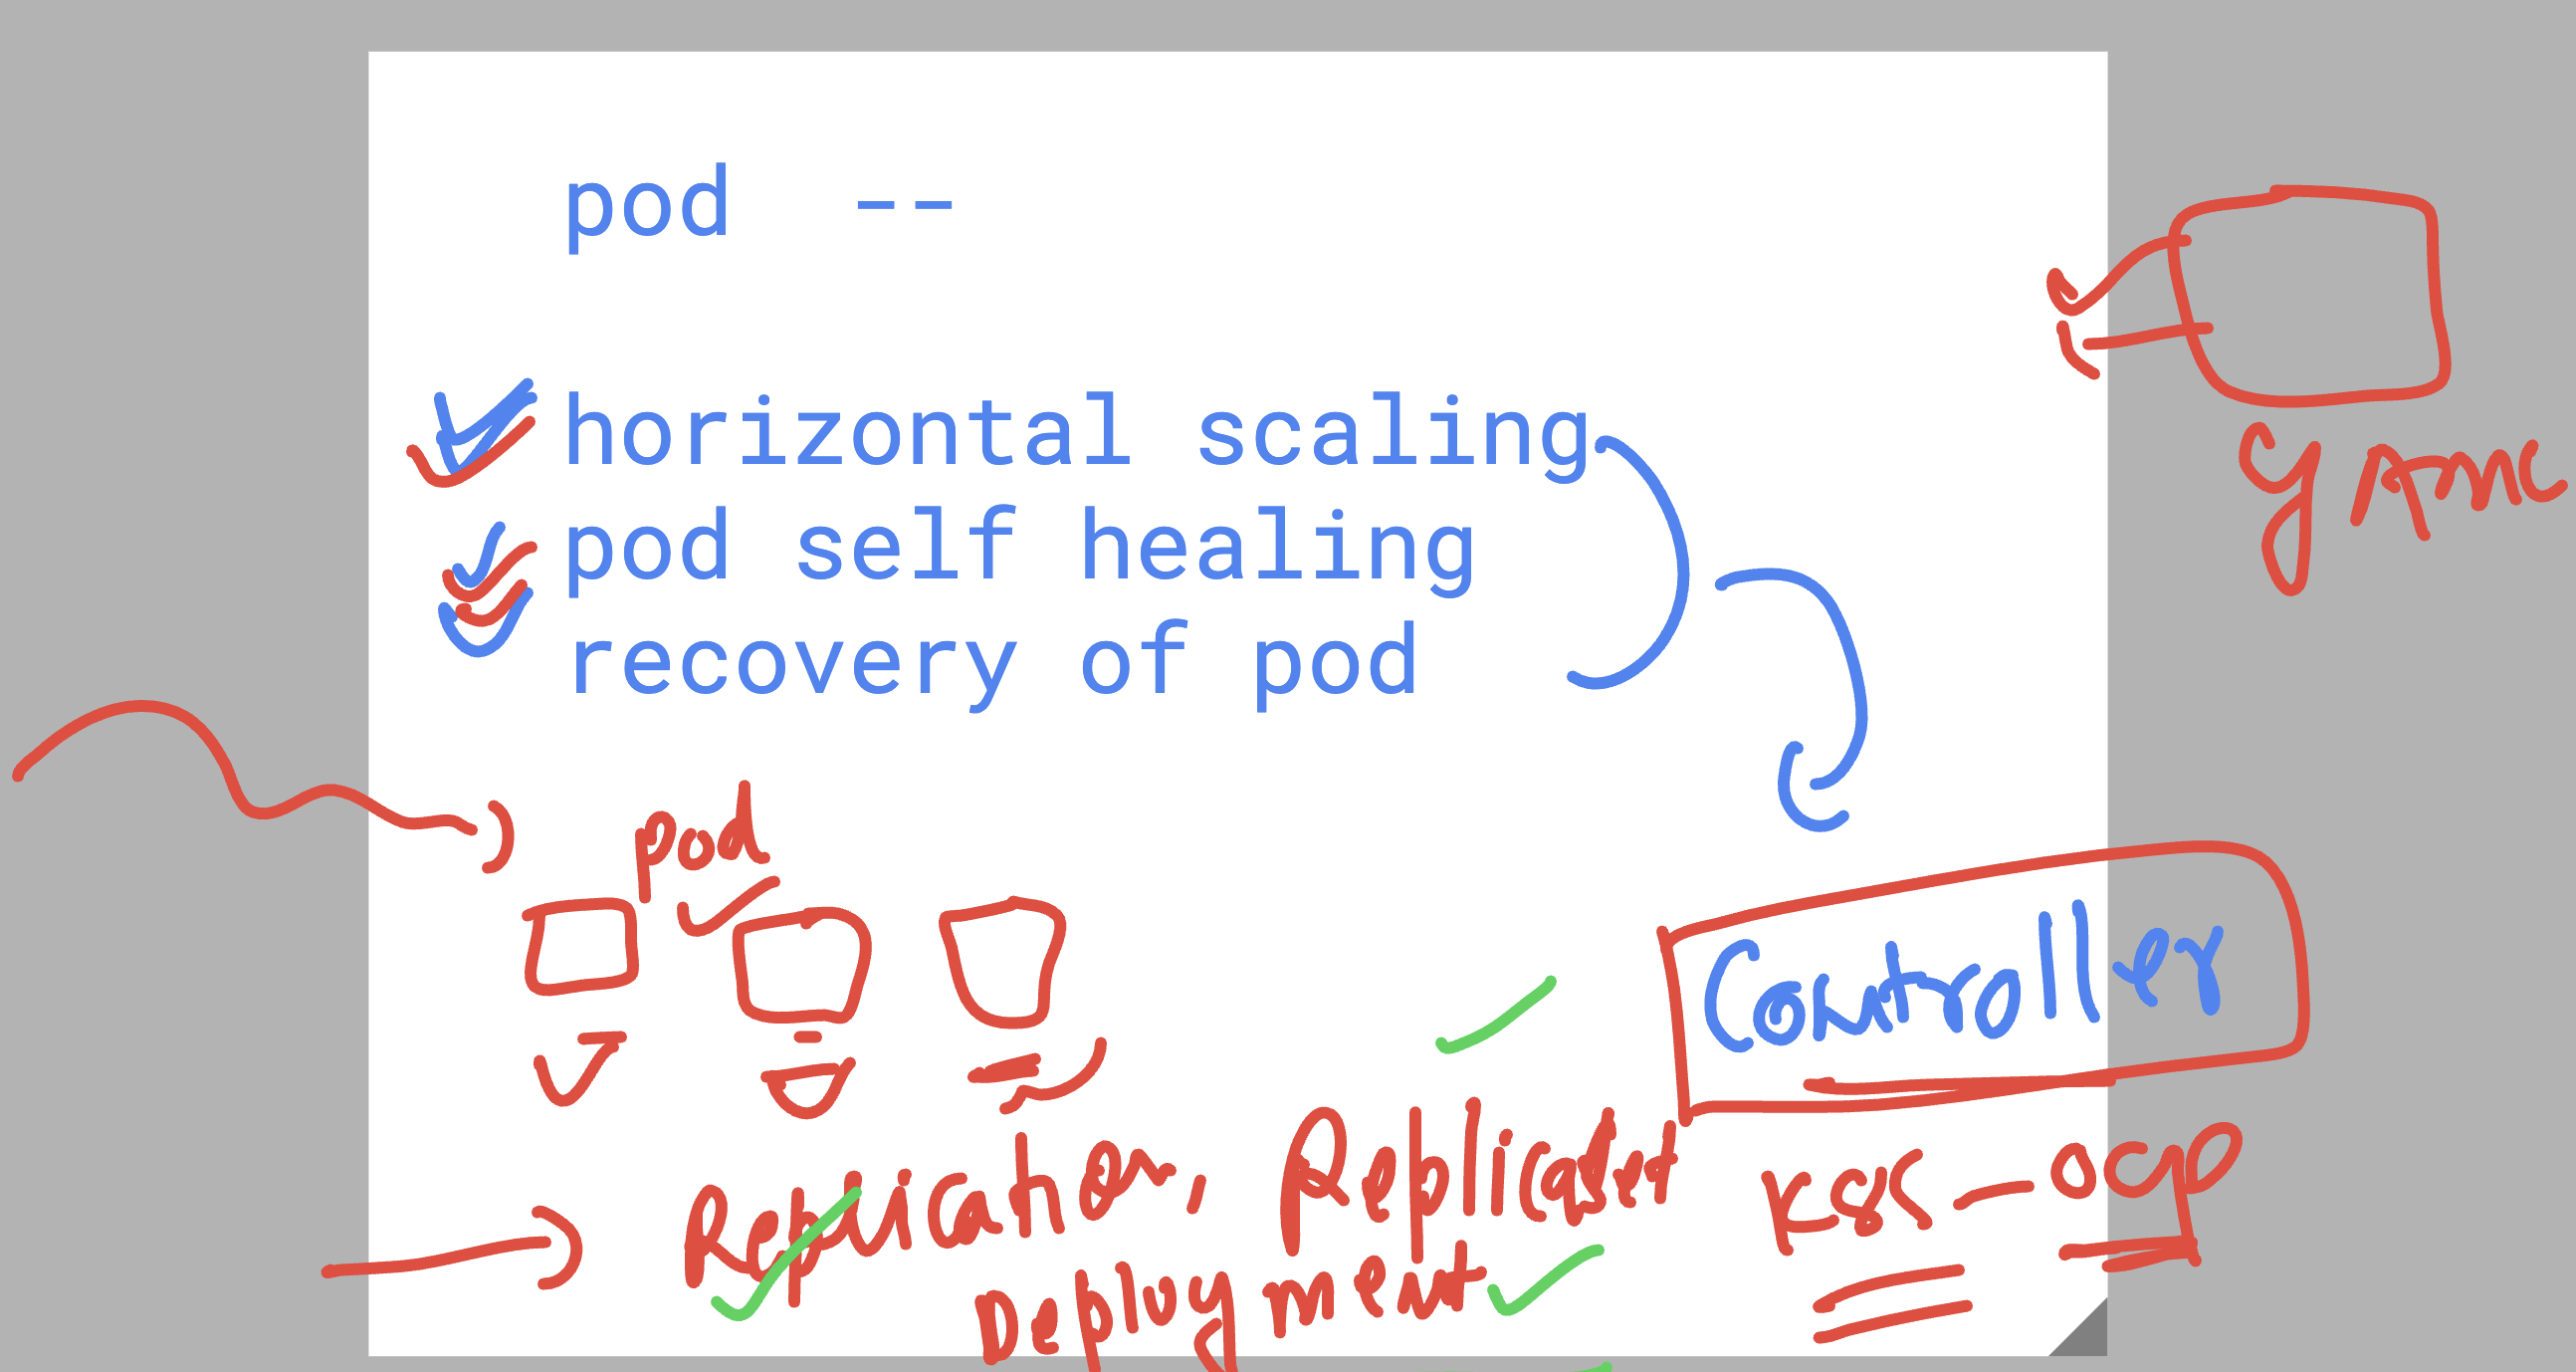 pod --
horizontal scaling
pod self healing
recovery of pod
pod
Controller
Replication, Replicaset
k8s - ocp
Deployment